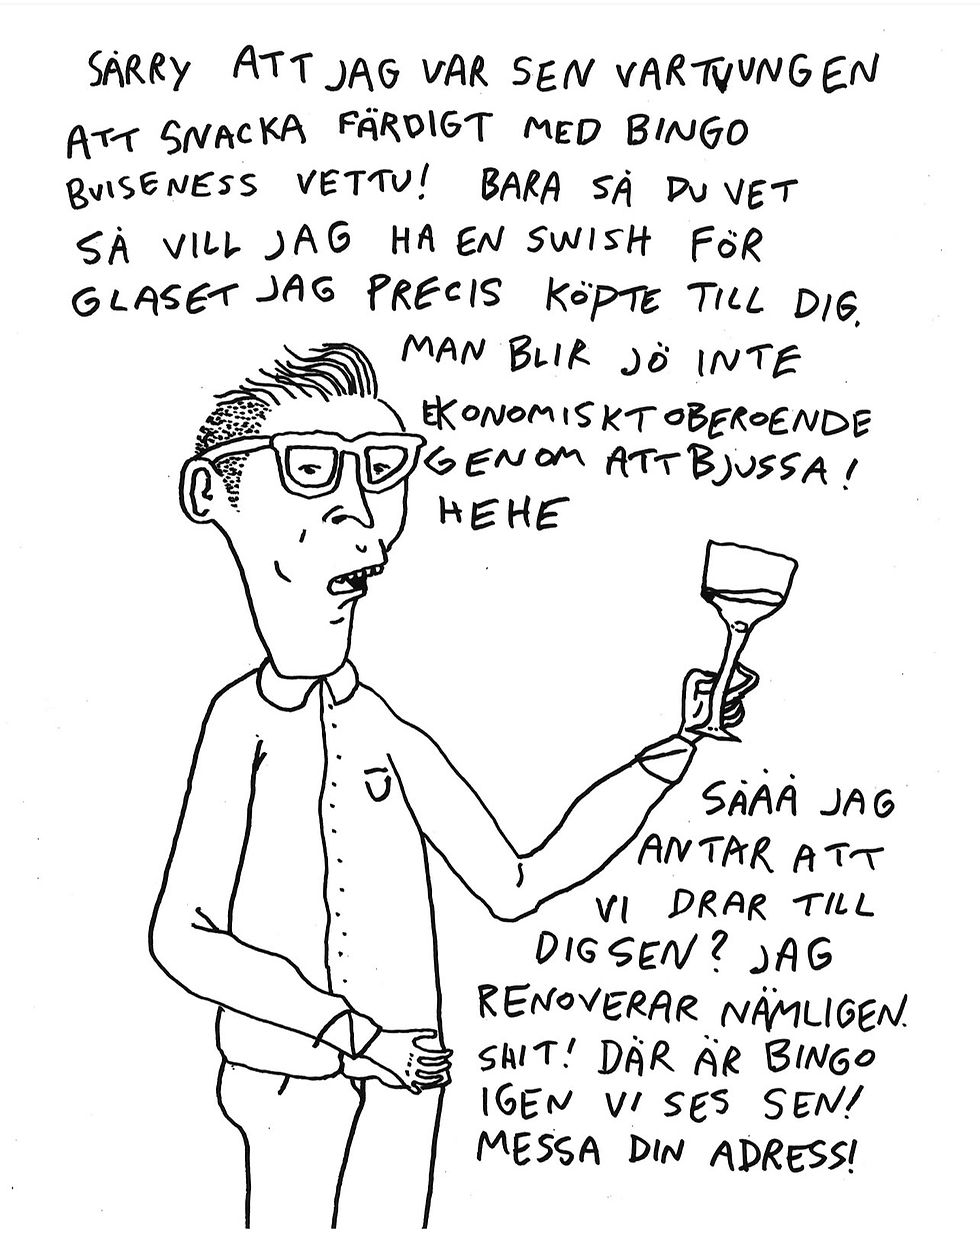 SÅRRY ATT JAG VAR SEN VARTVUNGEN
ATT SNACKA FÄRDIGT MED BINGO
BUISENESS VETTU! BARA SÅ DU VET
SÅ VILL JAG HA EN SWISH FÖR
GLASET JAG PRECIS KÖPTE TILL DIG.
MAN BLIR JÖ INTE
EKONOMISKT OBEROENDE
GENOM ATT BJUSSA!
HEHE
SÅÅÅ JAG
ANTAR ATT
VI DRAR TILL
DIG SEN? JAG
RENOVERAR NÄMLIGEN.
SHIT! DÄR ÄR BINGO
IGEN VI SES SEN!
MESSA DIN ADRESS!